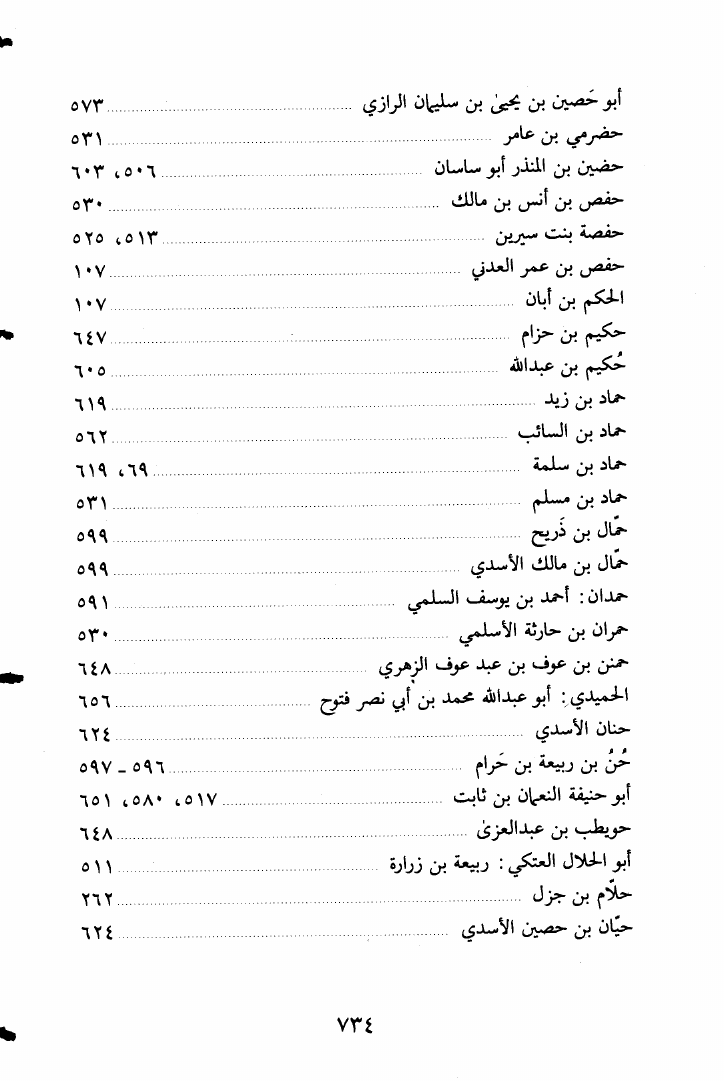 أبو حَصين بن يحيىٰ بن سليمان الرازي ........ ٥٧٣
حضرمي بن عامر ........ ٥٣١
حضين بن المنذر أبو ساسان ........ ٥٠٦، ٦٠٣
حفص بن أنس بن مالك ........ ٥٣٠
حفصة بنت سيرين ........ ٥١٣، ٥٢٥
حفص بن عمر العدني ........ ١٠٧
الحكم بن أبان ........ ١٠٧
حكيم بن حزام ........ ٦٤٧
حُكيم بن عبدالله ........ ٦٠٥
حماد بن زيد ........ ٦١٩
حماد بن السائب ........ ٥٦٢
حماد بن سلمة ........ ٦٩، ٦١٩
حماد بن مسلم ........ ٥٣١
حمّال بن ذَريح ........ ٥٩٩
حمّال بن مالك الأسدي ........ ٥٩٩
حمدان: أحمد بن يوسف السلمي ........ ٥٩١
حمران بن حارثة الأسلمي ........ ٥٣٠
حمنن بن عوف بن عبد عوف الزهري ........ ٦٤٨
الحميدي: أبو عبدالله محمد بن أبي نصر فتوح ........ ٦٥٦
حنان الأسدي ........ ٦٢٤
حُنُ بن ربيعة بن حَرام ........ ٥٩٦ ـ ٥٩٧
أبو حنيفة النعمان بن ثابت ........ ٥١٧، ٥٨٠، ٦٥١
حويطب بن عبدالعزىٰ ........ ٦٤٨
أبو الحلال العتكي: ربيعة بن زرارة ........ ٥١١
حلّام بن جزل ........ ٢٦٢
حيّان بن حصين الأسدي ........ ٦٢٤
٧٣٤